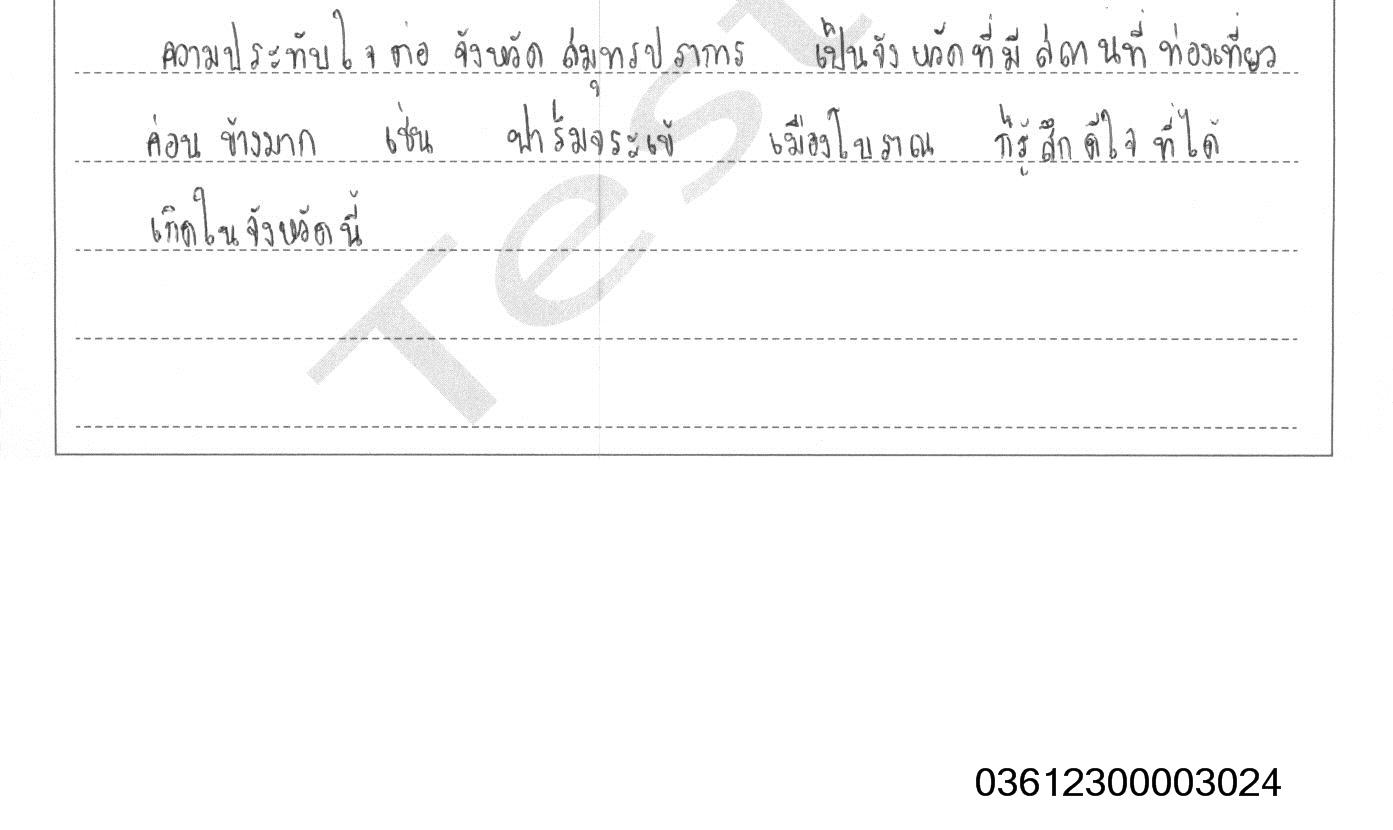 ความประทับใจต่อ จังหวัดสมุทรปราการ เป็นจังหวัดที่มีสถานที่ท่องเที่ยว
ค่อนข้างมาก เช่น ฟาร์มจระเข้ เมืองโบราณ ก็รู้สึกดีใจที่ได้
เกิดในจังหวัดนี้
Test
03612300003024